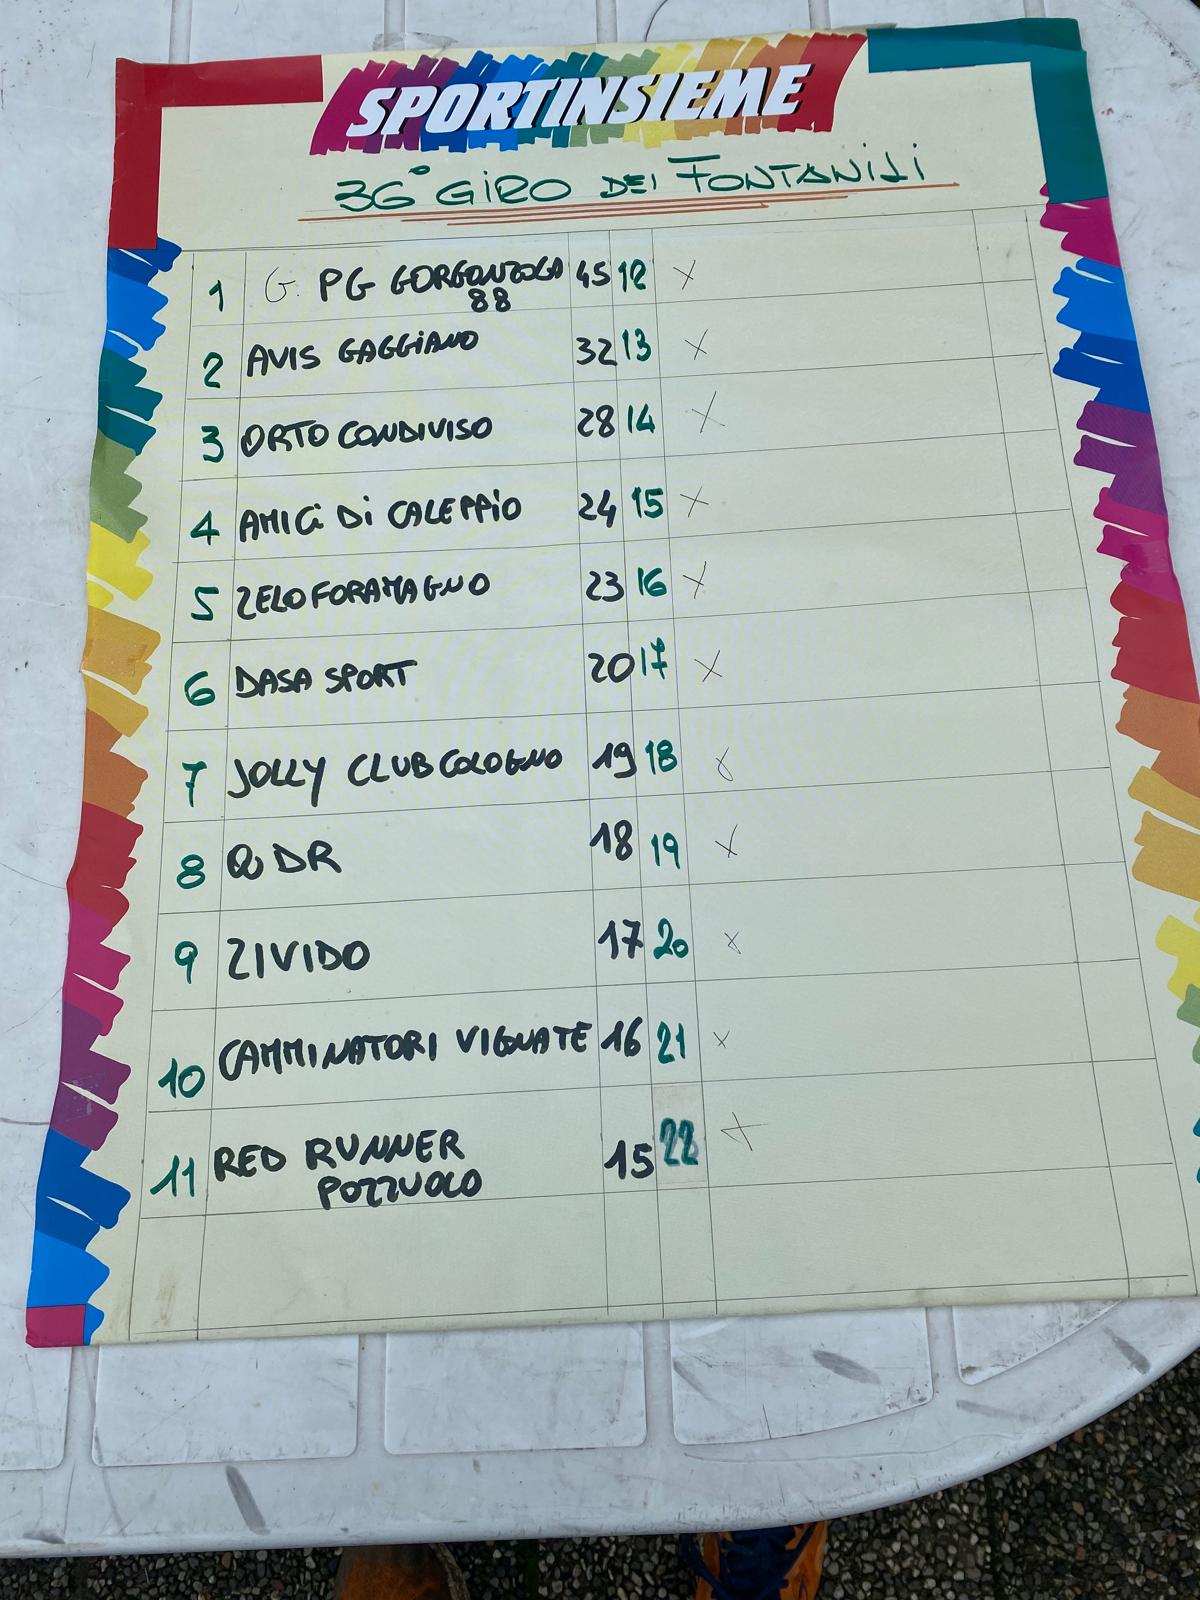 SPORTINSIEME
36° GIRO DEI FONTANILI
1 G. PG GORGONZOLA 45 12 X
88
2 AVIS GAGGIANO 32 13 X
3 ORTO CONDIVISO 28 14 X
4 AMICI DI CALEPPIO 24 15 X
5 ZELOFORAMAGNO 23 16 X
6 DASA SPORT 20 17 X
7 JOLLY CLUB COLOGNO 19 18 X
8 QDR 18 19 X
9 ZIVIDO 17 20 X
10 CAMMINATORI VIGNATE 16 21 X
11 RED RUNNER 15 22 X
POZZUOLO